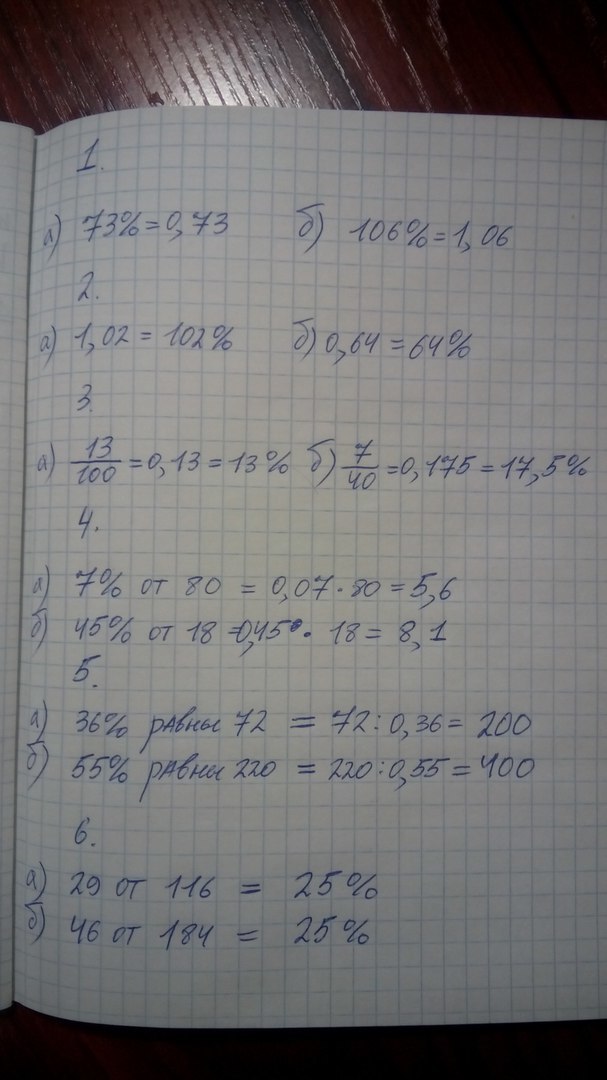 1.
а) 73% = 0,73 б) 106% = 1,06
2.
а) 1,02 = 102% б) 0,64 = 64%
3.
а) 13/100 = 0,13 = 13% б) 7/40 = 0,175 = 17,5%
4.
а) 7% от 80 = 0,07 · 80 = 5,6
б) 45% от 18 = 0,45 · 18 = 8,1
5.
а) 36% равны 72 = 72 : 0,36 = 200
б) 55% равны 220 = 220 : 0,55 = 400
6.
а) 29 от 116 = 25%
б) 46 от 184 = 25%